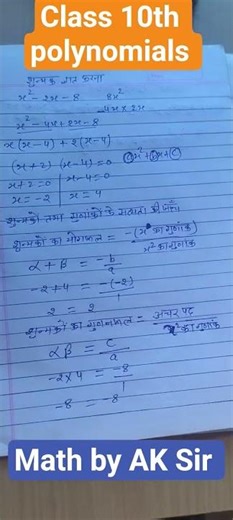 Class 10th
polynomials
शून्यक ज्ञात करना
x² - 2x - 8 8x²
-4x × 2x
x² - 4x + 2x - 8
x(x-4) + 2(x-4)
(x+2) (x-4) = 0 ax² + bx + c
x+2 = 0 | x-4 = 0
x = -2 | x = 4
शून्यकों तथा गुणांकों के सत्यता की जाँच
शून्यकों का योगफल = -(x का गुणांक)
x² का गुणांक
α + β = -b
a
-2+4 = -(-2)
1
2 = 2
शून्यकों का गुणनफल = अचर पद
x² का गुणांक
αβ = c
a
-2×4 = -8
1
-8 = -8
Math by AK Sir